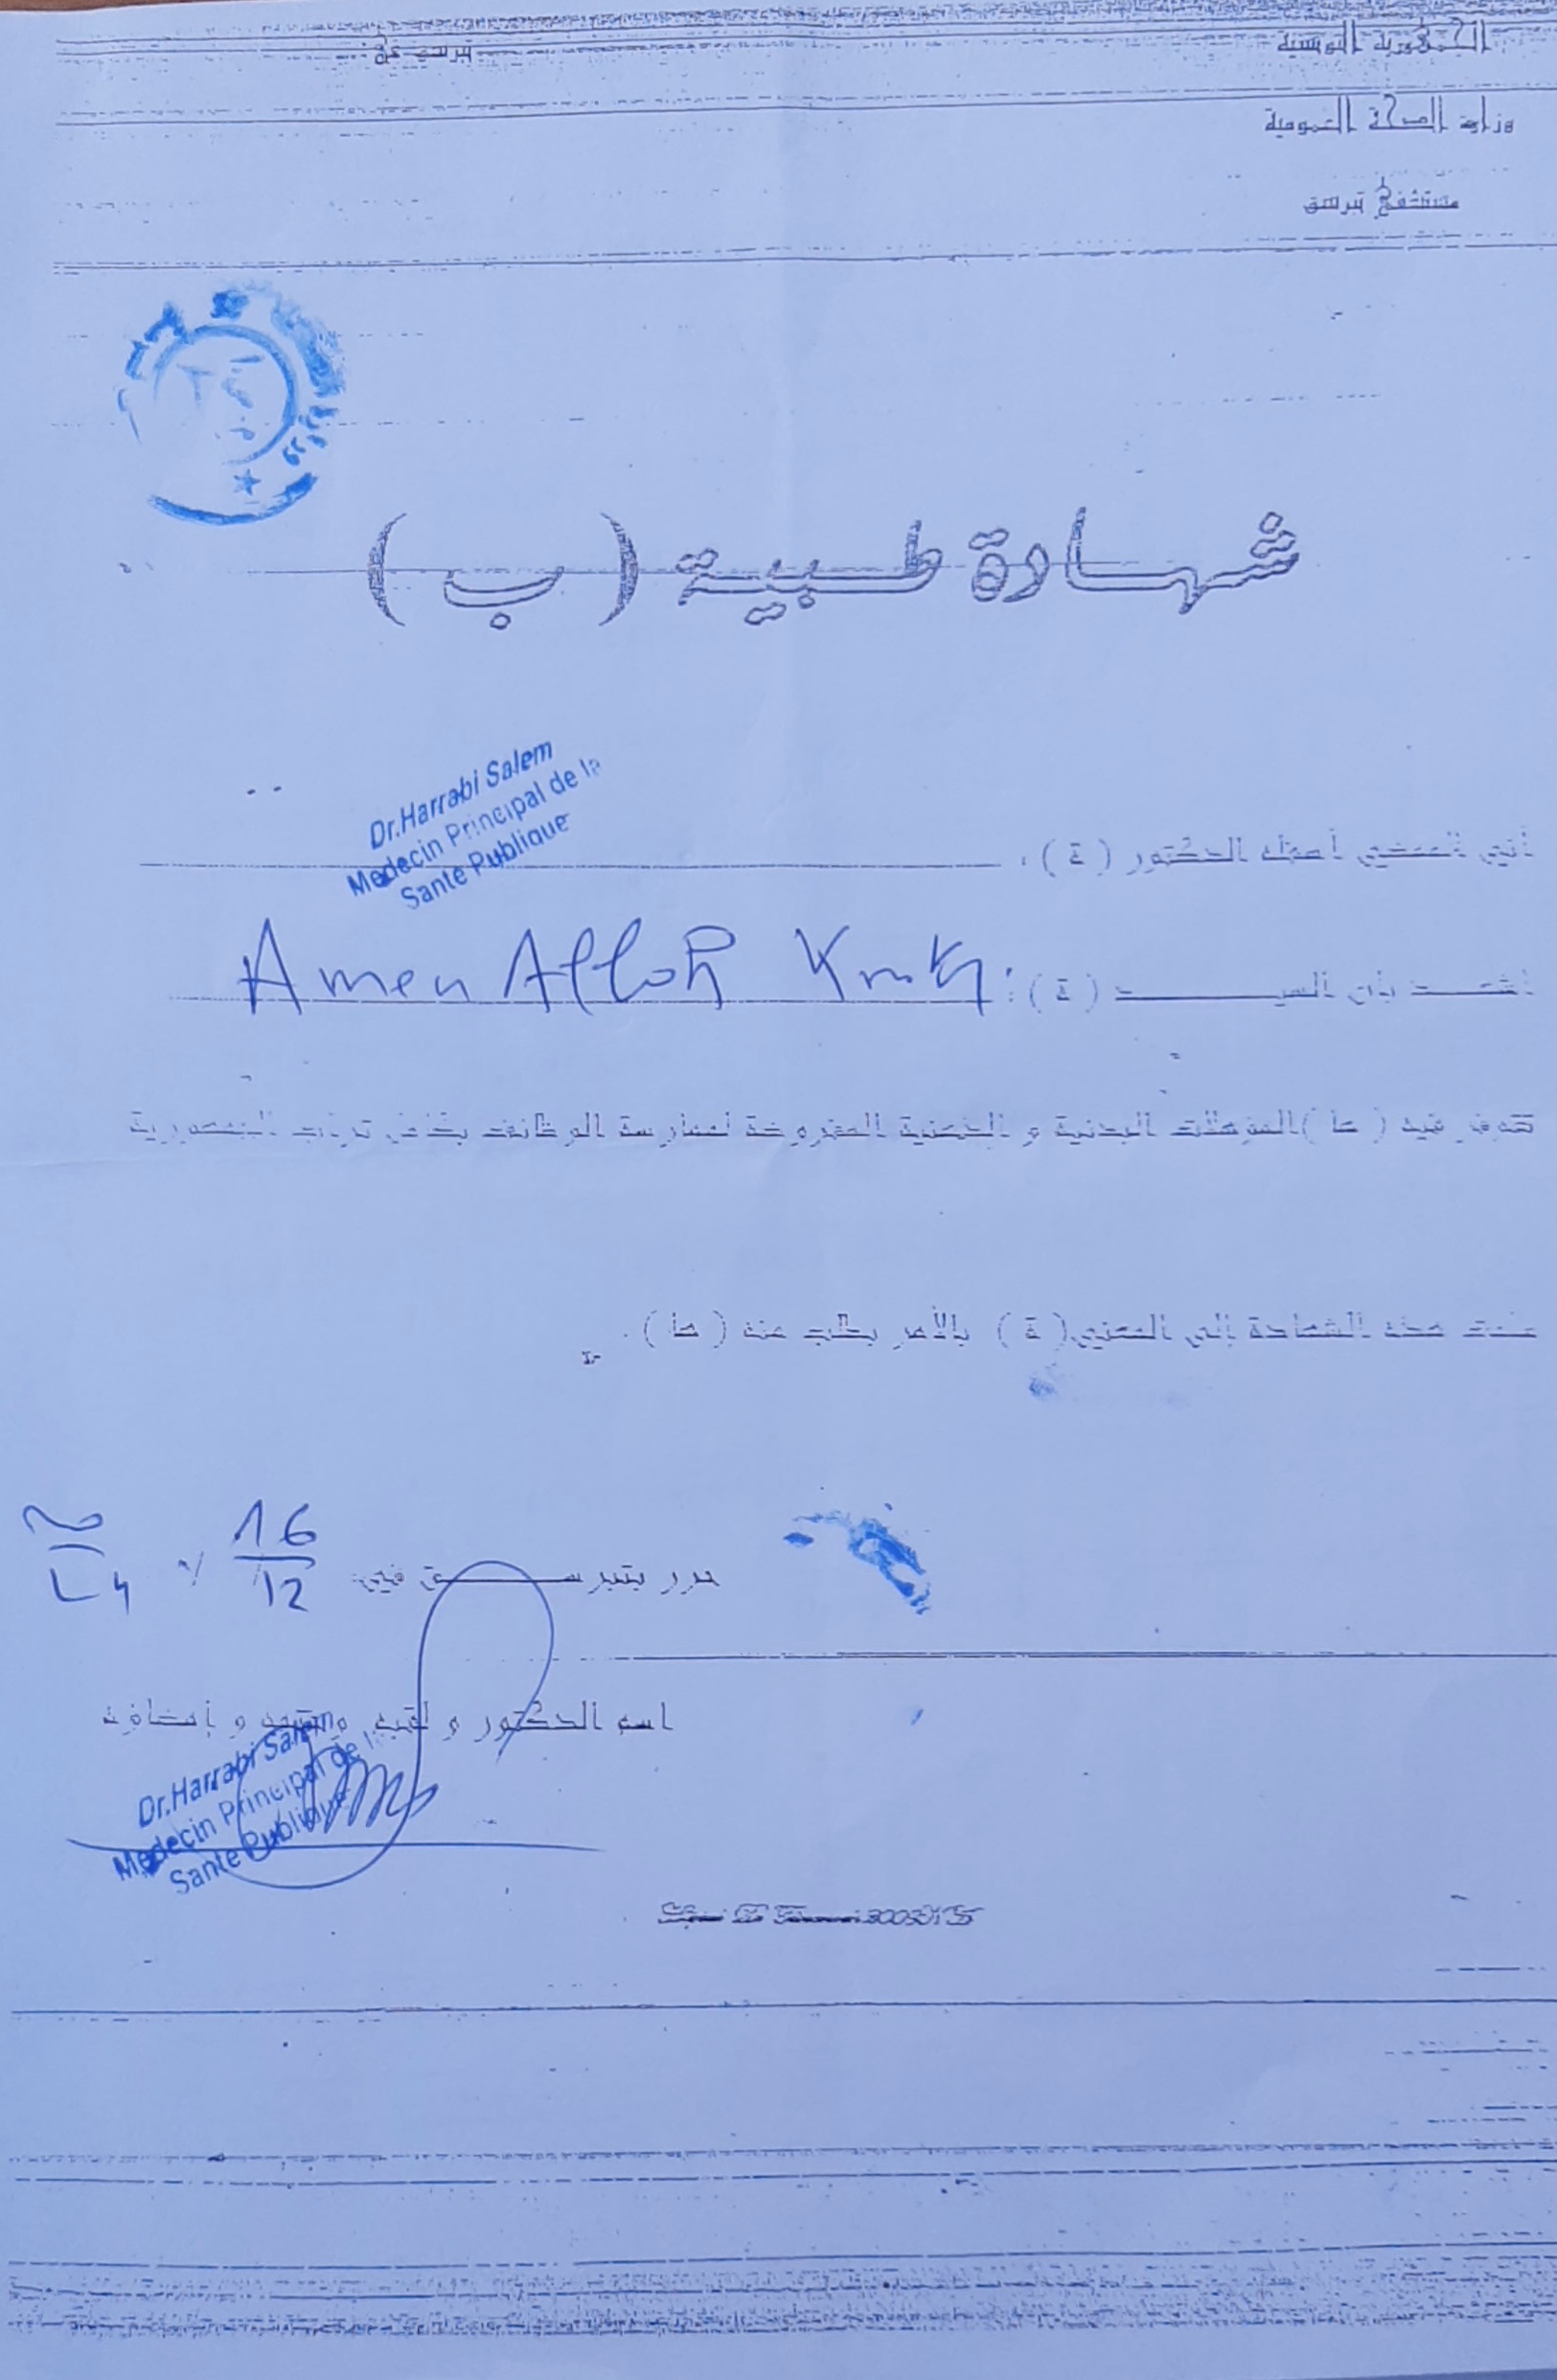 الجمهورية التونسية
تبرسق في :
وزارة الصحة العمومية
مستشفى تبرسق
شهادة طبية ( ب )
إني الممضي أسفله الدكتور ( ة ) :
Dr.Harrabi Salem
Medecin Principal de la
Sante Publique
أشهد بأن السيد ( ة ) :
Amen Allah
تتوفر فيه ( ها ) المؤهلات البدنية و الذهنية المفروضة لممارسة الوظائف بكامل تراب الجمهورية
سلمت هذه الشهادة إلى المعني ( ة ) بالأمر بطلب منه ( ها ) .
حرر بتبرسق في
16
12
اسم الدكتور و لقبه وختمه و إمضاؤه
Dr.Harrabi Salem
Medecin Principal de l
Sante Publique